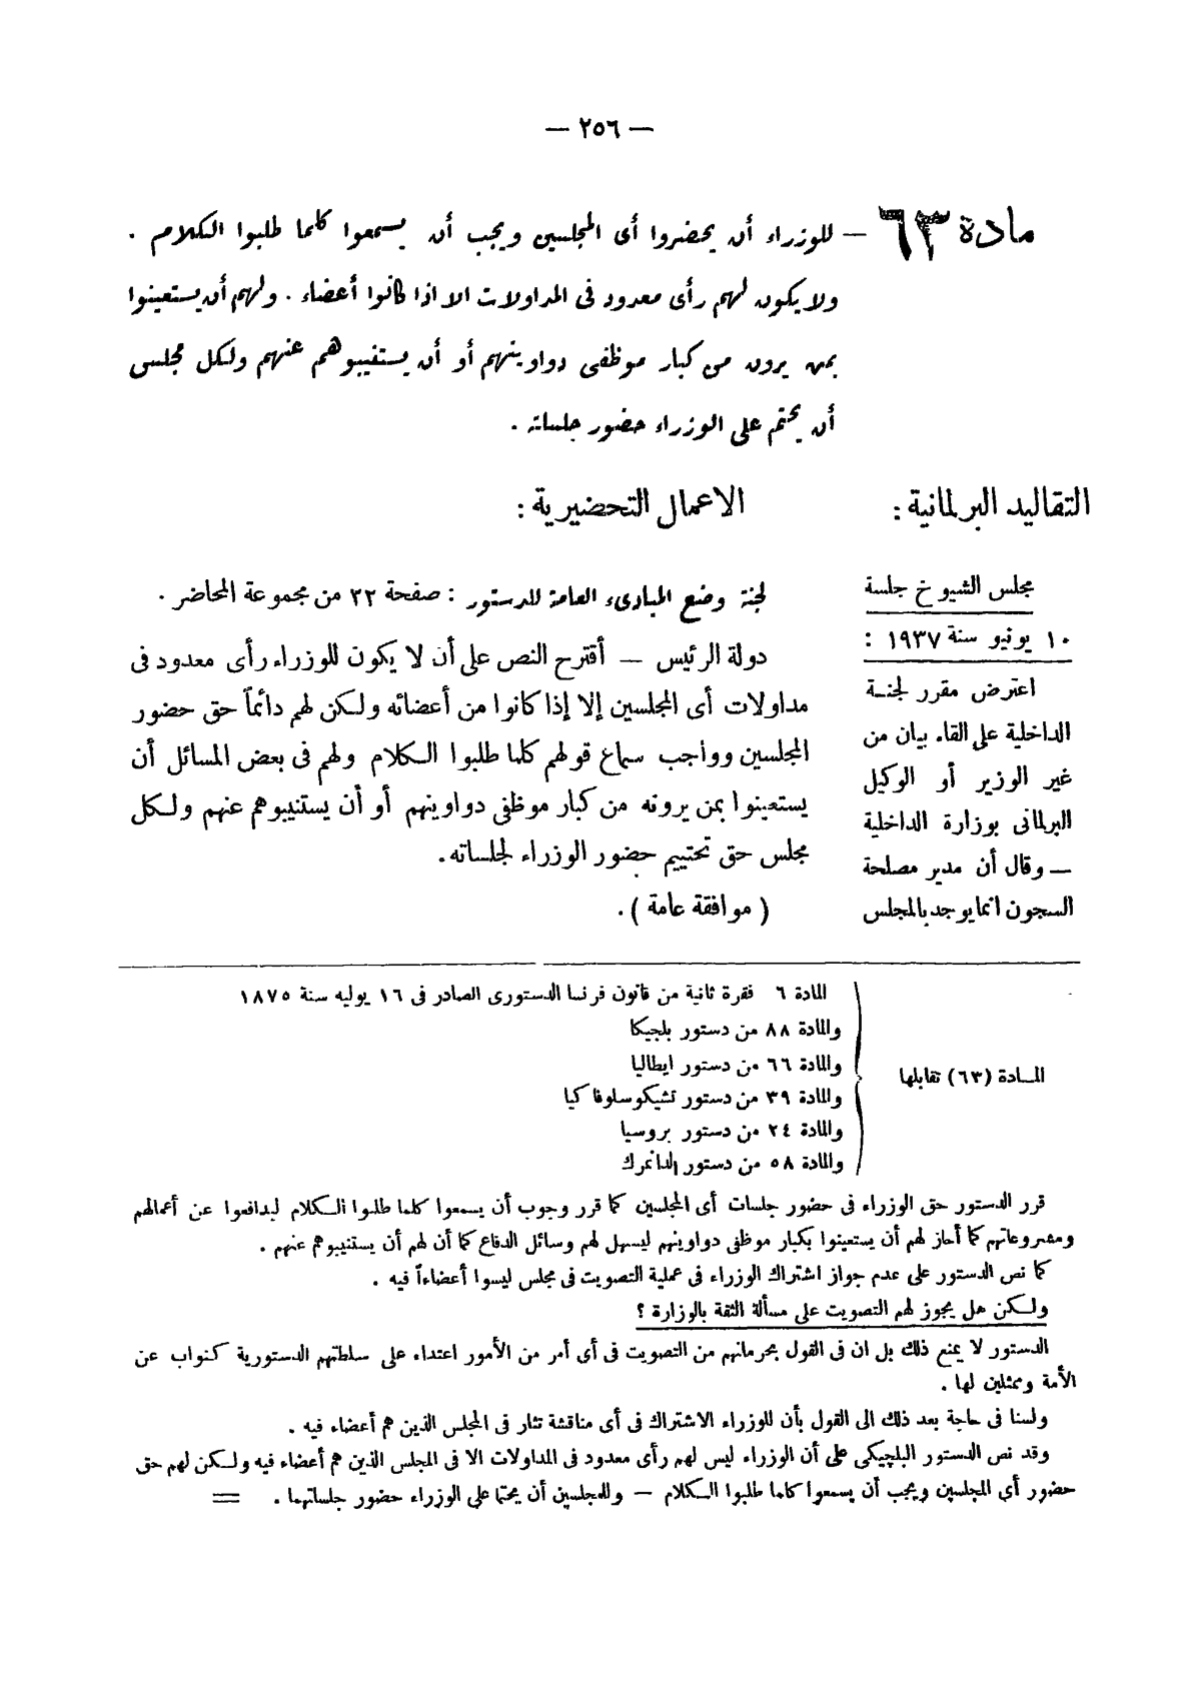 — ٢٥٦ —
مادة ٦٣ — للوزراء أن يحضروا أى المجلسين ويجب أن يسمعوا كلما طلبوا الكلام .
ولا يكون لهم رأى معدود فى المداولات الا اذا كانوا أعضاء . ولهم أن يستعينوا
بمن يرون من كبار موظفى دواوينهم أو أن يستنيبوهم عنهم ولكل مجلس
أن يحتم على الوزراء حضور جلساته .
التقاليد البرلمانية :
مجلس الشيوخ جلسة
١٠ يونيو سنة ١٩٣٧ :
اعترض مقرر لجنة
الداخلية على القاء بيان من
غير الوزير أو الوكيل
البرلمانى بوزارة الداخلية
— وقال أن مدير مصلحة
السجون انما يوجد بالمجلس
الاعمال التحضيرية :
لجنة وضع المبادىء العامة للدستور : صفحة ٢٢ من مجموعة المحاضر .
دولة الرئيس — أقترح النص على أن لا يكون للوزراء رأى معدود فى
مداولات أى المجلسين إلا إذا كانوا من أعضائه ولكن لهم دائماً حق حضور
المجلسين وواجب سماع قولهم كلما طلبوا الكلام ولهم فى بعض المسائل أن
يستعينوا بمن يرونه من كبار موظفى دواوينهم أو أن يستنيبوهم عنهم ولكل
مجلس حق تحتيم حضور الوزراء لجلساته .
( موافقة عامة ) .
المادة (٦٣) تقابلها
المادة ٦ فقرة ثانية من قانون فرنسا الدستورى الصادر فى ١٦ يوليه سنة ١٨٧٥
والمادة ٨٨ من دستور بلجيكا
والمادة ٦٦ من دستور ايطاليا
والمادة ٣٩ من دستور تشيكوسلوفاكيا
والمادة ٢٤ من دستور بروسيا
والمادة ٥٨ من دستور الدانمرك
قرر الدستور حق الوزراء فى حضور جلسات أى المجلسين كما قرر وجوب أن يسمعوا كلما طلبوا الكلام ليدافعوا عن أعمالهم
ومشروعاتهم كما أجاز لهم أن يستعينوا بكبار موظفى دواوينهم ليسهل لهم وسائل الدفاع كما أن لهم أن يستنيبوهم عنهم .
كما نص الدستور على عدم جواز اشتراك الوزراء فى عملية التصويت فى مجلس ليسوا أعضاءاً فيه .
ولكن هل يجوز لهم التصويت على مسألة الثقة بالوزارة ؟
الدستور لا يمنع ذلك بل ان فى القول بحرمانهم من التصويت فى أى أمر من الأمور اعتداء على سلطتهم الدستورية كنواب عن
الأمة وممثلين لها .
ولسنا فى حاجة بعد ذلك الى القول بأن للوزراء الاشتراك فى أى مناقشة تثار فى المجلس الذين هم أعضاء فيه .
وقد نص الدستور البلجيكى على أن الوزراء ليس لهم رأى معدود فى المداولات الا فى المجلس الذين هم أعضاء فيه ولكن لهم حق
حضور أى المجلسين ويجب أن يسمعوا كلما طلبوا الكلام — وللمجلسين أن يحتما على الوزراء حضور جلساتهما . =